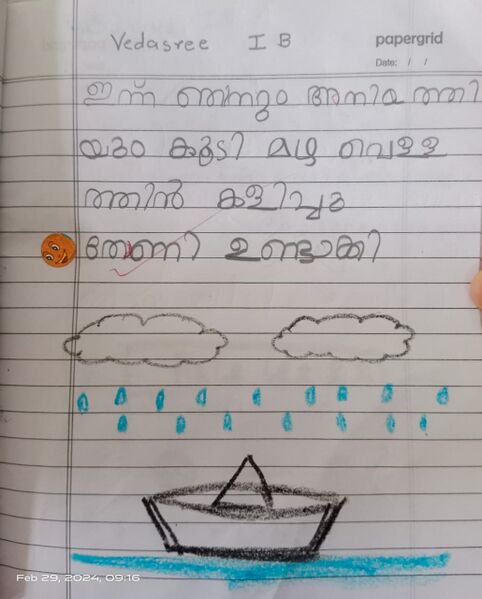 Vedasree I B
papergrid
Date: / /
ഇന്ന് ഞാനും അനിയത്തി
യും കൂടി മഴ വെള്ള
ത്തിൽ കളിച്ചു
തോണി ഉണ്ടാക്കി
Feb 29, 2024, 09:16